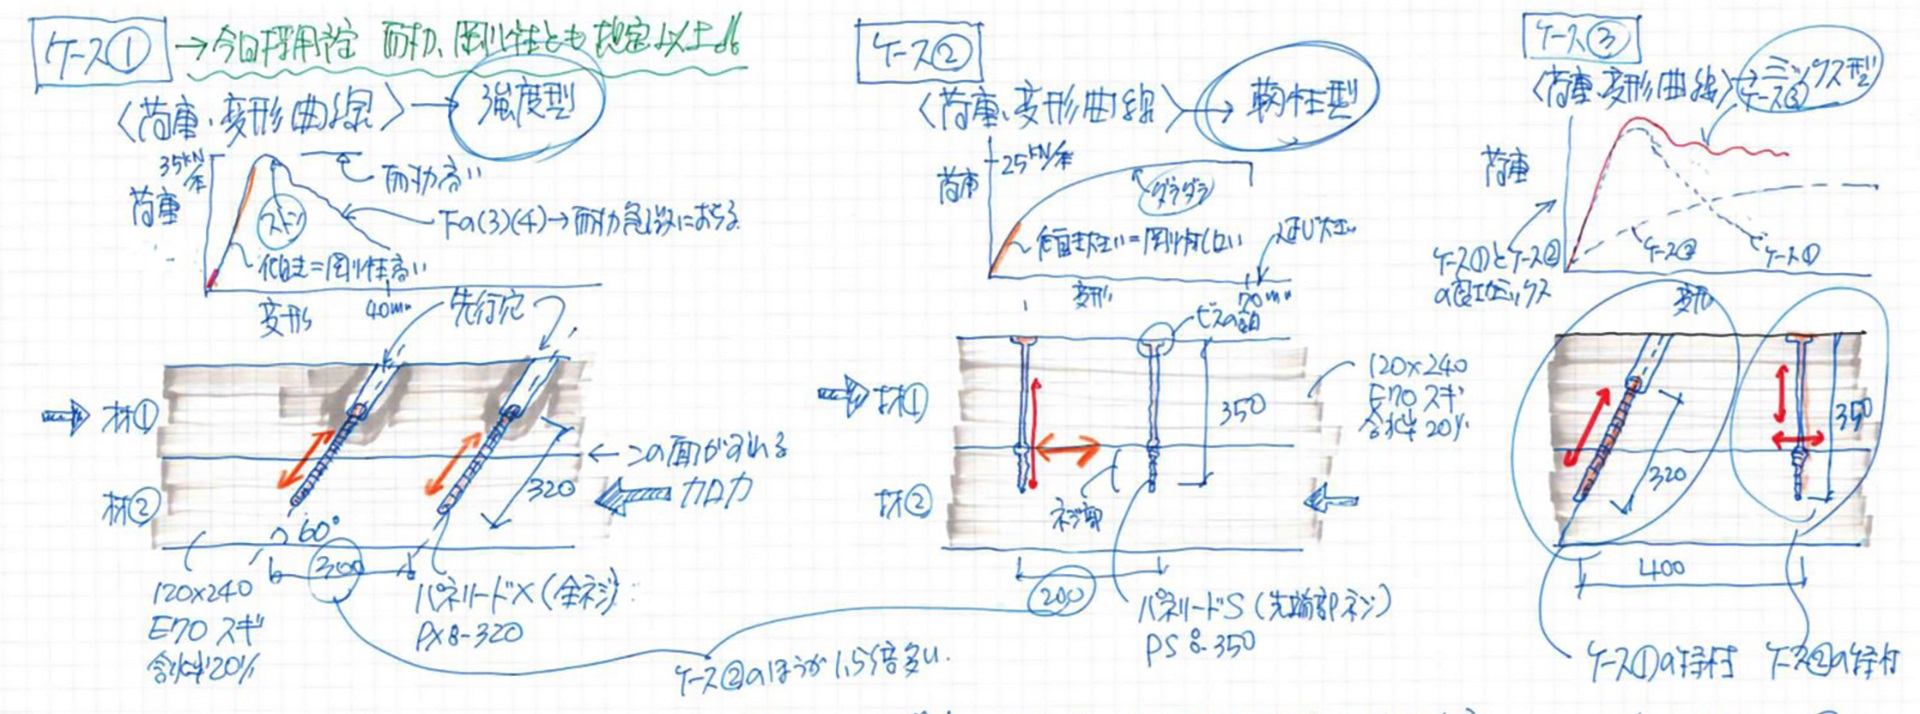 ケース①
→今回採用法 耐力、剛性とも想定以上
〈荷重、変形曲線〉→強度型
35kN/本
荷重
耐力高い
ストン
下の(3)(4)→耐力急激におちる
傾き=剛性高い
変形
40mm
先行穴
材①
材②
この面がずれる
加力
320
60°
300
120×240
E70 スギ
含水率20%
パネリードX(全ネジ)
PX8-320
ケース②のほうが1.5倍多い.
ケース②
〈荷重、変形曲線〉→靭性型
25kN/本
荷重
ダラダラ
傾き小さい=剛性低い
のび大きい
変形
70mm
ビスの頭
材①
材②
350
ネジ部
120×240
E70 スギ
含水率20%
200
パネリードS(先端部ネジ)
PS8-350
ケース③
〈荷重、変形曲線〉→ミックス型
荷重
ケース①とケース②
のミックス
ケース②
ケース①
変形
320
350
400
ケース①の径材
ケース②の径材